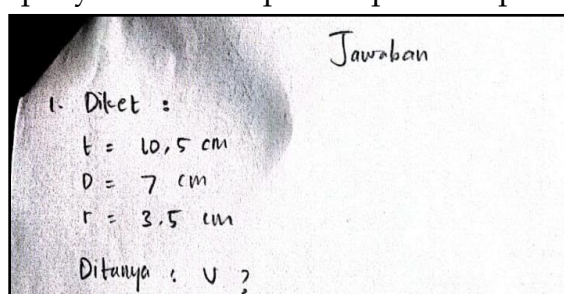 Jawaban
1. Diket :
t = 10,5 cm
D = 7 cm
r = 3.5 cm
Ditanya : V ?